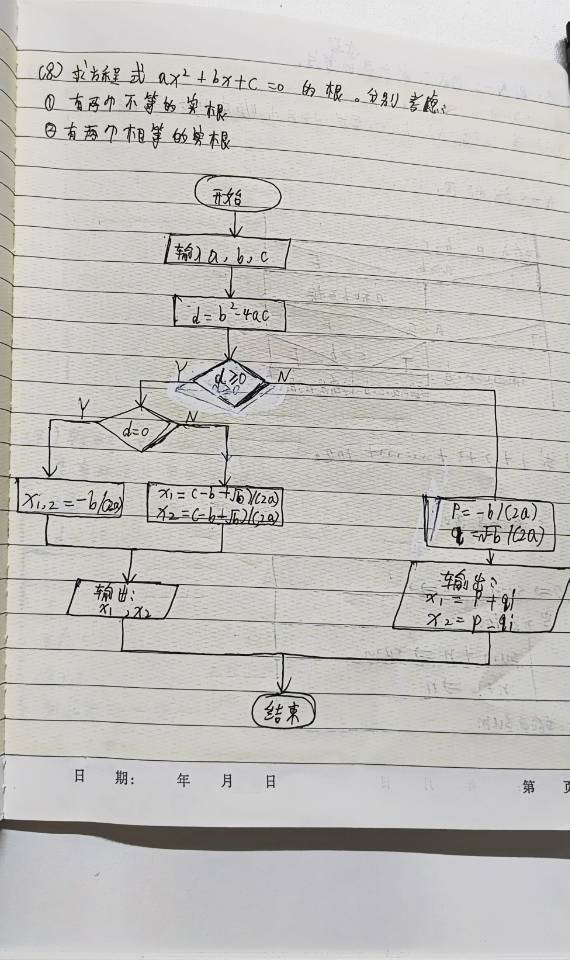 (8) 求方程式 ax²+bx+c=0 的根。分别考虑:
① 有两个不等的实根
② 有两个相等的实根
开始
输入 a, b, c
d=b²-4ac
d≥0
Y
N
d=0
Y
N
x₁,₂=-b/(2a)
x₁=(-b+√b)/(2a)
x₂=(-b+√b)/(2a)
P=-b/(2a)
q=√b/(2a)
输出:
x₁, x₂
输出:
x₁=P+qi
x₂=P-qi
结束
日 期: 年 月 日
第 页